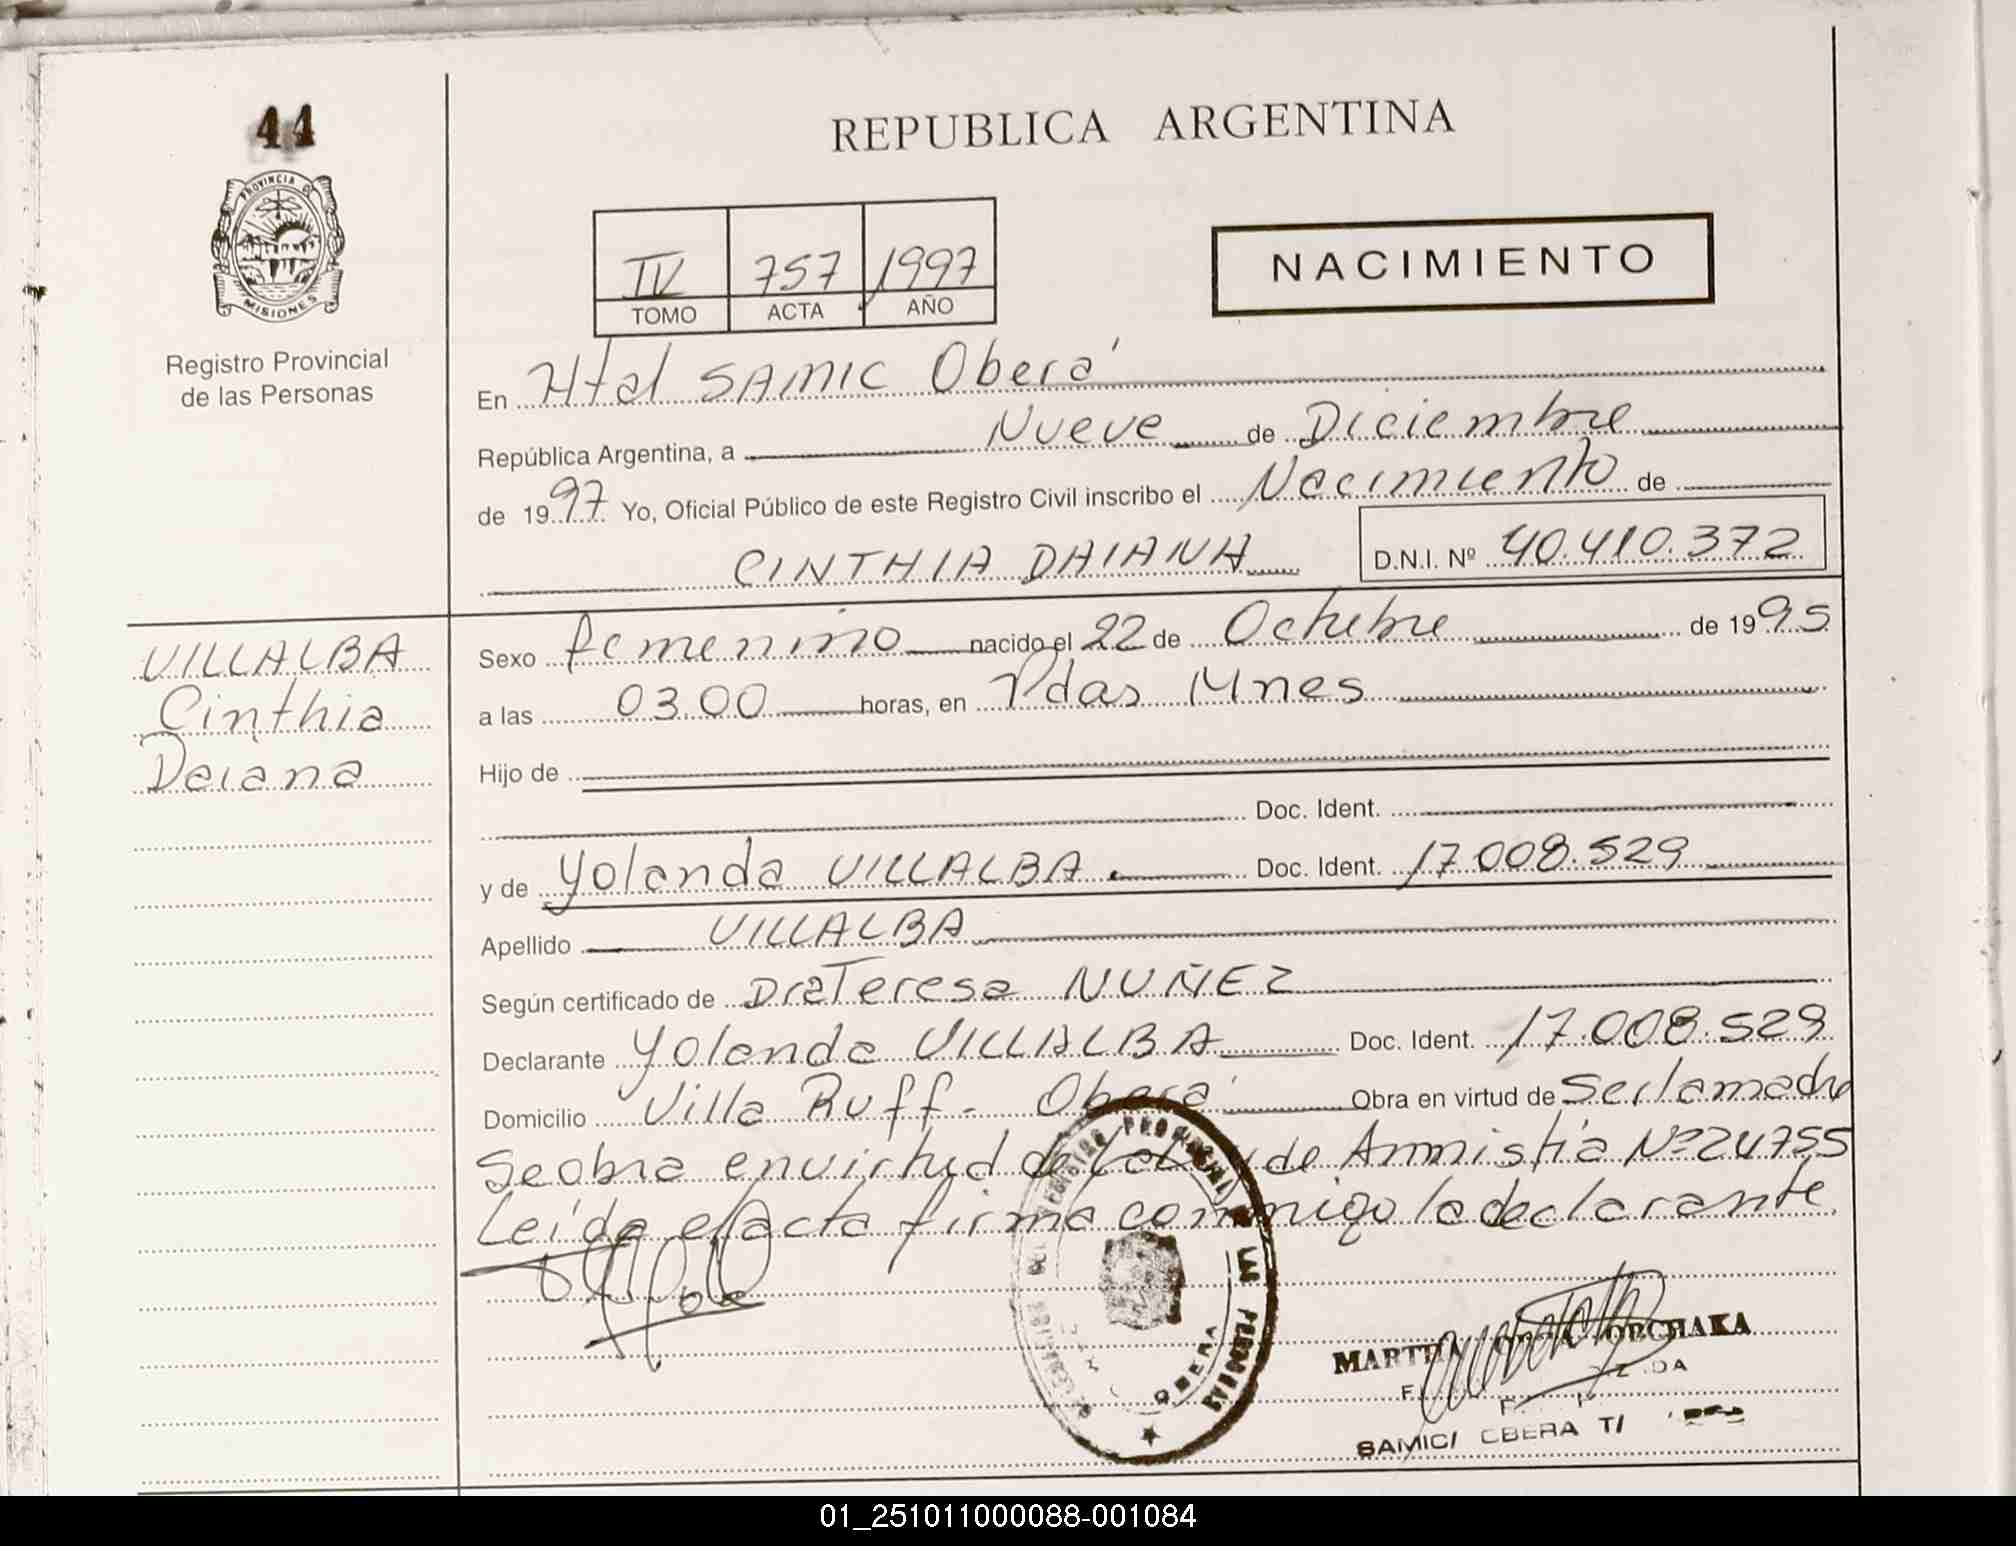 44
PROVINCIA D
MISIONES
Registro Provincial
de las Personas
REPUBLICA ARGENTINA
IV 757 1997
TOMO ACTA AÑO
NACIMIENTO
En Htal SAMIC Oberá
República Argentina, a Nueve de Diciembre
de 1997 Yo, Oficial Público de este Registro Civil inscribo el Nacimiento de
CINTHIA DAIANA D.N.I. Nº 40.410.372
VILLALBA
Cinthia
Daiana
Sexo femenino nacido el 22 de Octubre de 1995
a las 03.00 horas, en Pdas Mnes
Hijo de
Doc. Ident.
y de Yolanda VILLALBA. Doc. Ident. 17.008.529
Apellido VILLALBA
Según certificado de Dra Teresa NUÑEZ
Declarante Yolanda VILLALBA Doc. Ident. 17.008.529
Domicilio Villa Ruff - Oberá Obra en virtud de Ser la madre
Se obra en virtud de la Ley de Amnistía Nº 24755
Leída el acta firma conmigo la declarante.
REGISTRO PROVINCIAL DE LAS PERSONAS
OBERA
MARTHA ORCHAKA
SAMIC/ OBERA T/
01_251011000088-001084